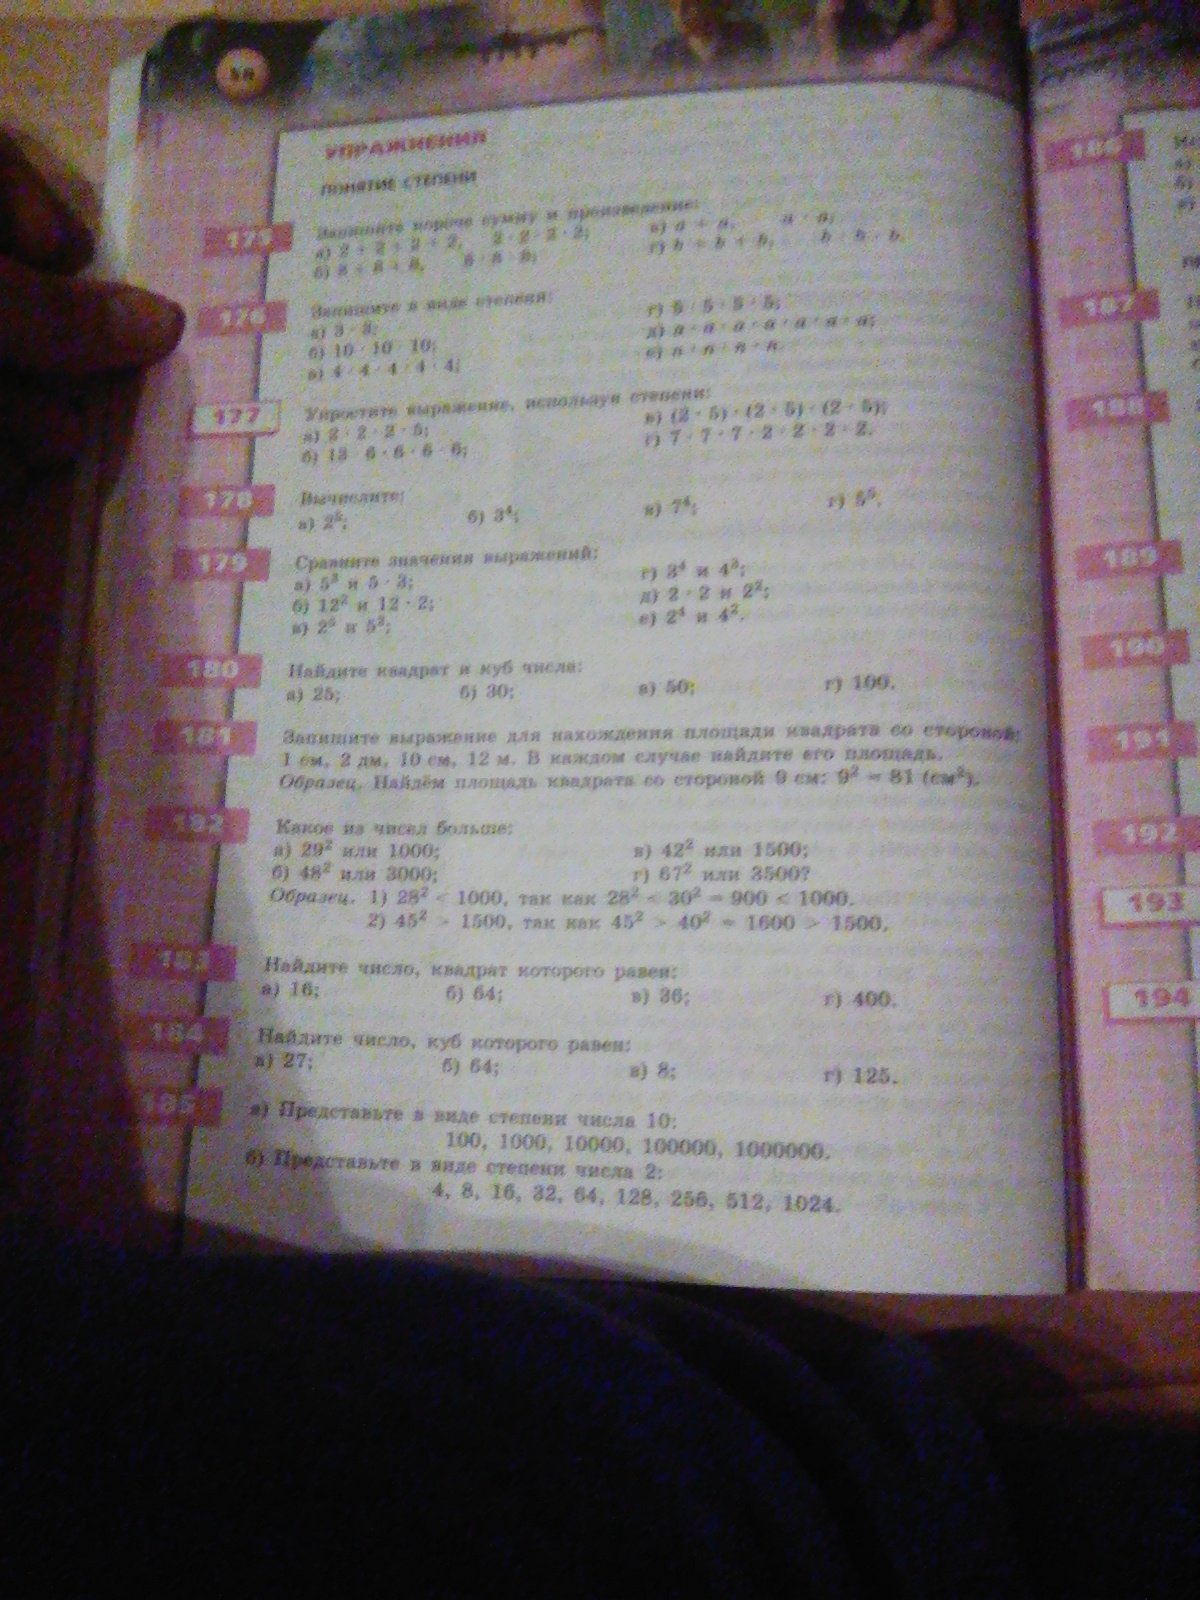 УПРАЖНЕНИЯ
ПОНЯТИЕ СТЕПЕНИ
175 Запишите короче сумму и произведение:
а) 2 + 2 + 2 + 2, 2 · 2 · 2 · 2; в) a + a, a · a;
б) 8 + 8 + 8, 8 · 8 · 8; г) b + b + b, b · b · b.
176 Запишите в виде степени:
а) 3 · 3; г) 5 · 5 · 5 · 5;
б) 10 · 10 · 10; д) a · a · a · a · a · a · a;
в) 4 · 4 · 4 · 4 · 4; е) n · n · n · n.
177 Упростите выражение, используя степени:
а) 2 · 2 · 2 · 5; в) (2 · 5) · (2 · 5) · (2 · 5);
б) 13 · 6 · 6 · 6 · 6; г) 7 · 7 · 7 · 2 · 2 · 2 · 2.
178 Вычислите:
а) 2⁵; б) 3⁴; в) 7⁴; г) 5⁵.
179 Сравните значения выражений:
а) 5³ и 5 · 3; г) 3⁴ и 4³;
б) 12² и 12 · 2; д) 2 · 2 и 2²;
в) 2⁵ и 5²; е) 2⁴ и 4².
180 Найдите квадрат и куб числа:
а) 25; б) 30; в) 50; г) 100.
181 Запишите выражение для нахождения площади квадрата со стороной:
1 см, 2 дм, 10 см, 12 м. В каждом случае найдите его площадь.
Образец. Найдём площадь квадрата со стороной 9 см: 9² = 81 (см²).
182 Какое из чисел больше:
а) 29² или 1000; в) 42² или 1500;
б) 48² или 3000; г) 67² или 3500?
Образец. 1) 28² < 1000, так как 28² < 30² = 900 < 1000.
2) 45² > 1500, так как 45² > 40² = 1600 > 1500.
183 Найдите число, квадрат которого равен:
а) 16; б) 64; в) 36; г) 400.
184 Найдите число, куб которого равен:
а) 27; б) 64; в) 8; г) 125.
185 а) Представьте в виде степени числа 10:
100, 1000, 10000, 100000, 1000000.
б) Представьте в виде степени числа 2:
4, 8, 16, 32, 64, 128, 256, 512, 1024.
186
187
188
189
190
191
192
193
194